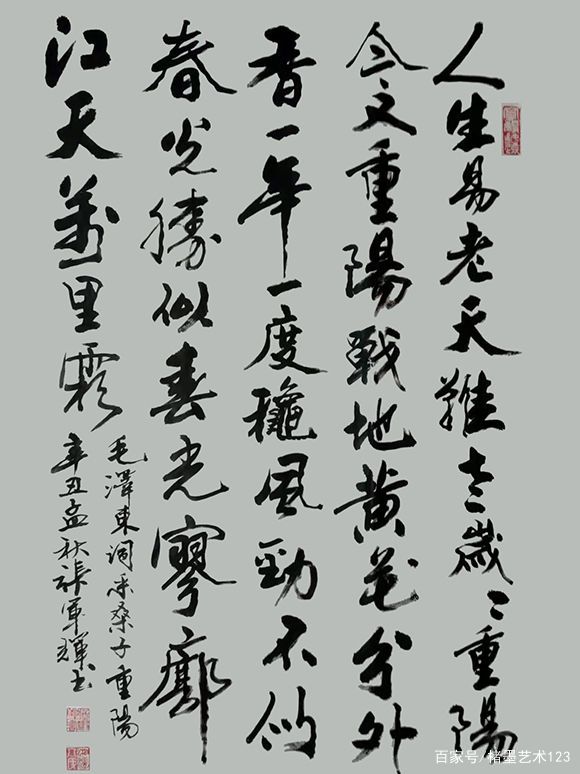 人生易老天難老歲〻重陽
今又重陽戰地黄花分外
香一年一度穐風勁不似
春光勝似春光寥廓
江天萬里霜
毛澤東詞采桑子重陽
辛丑孟秋張軍輝书
百家号/楮墨艺术123